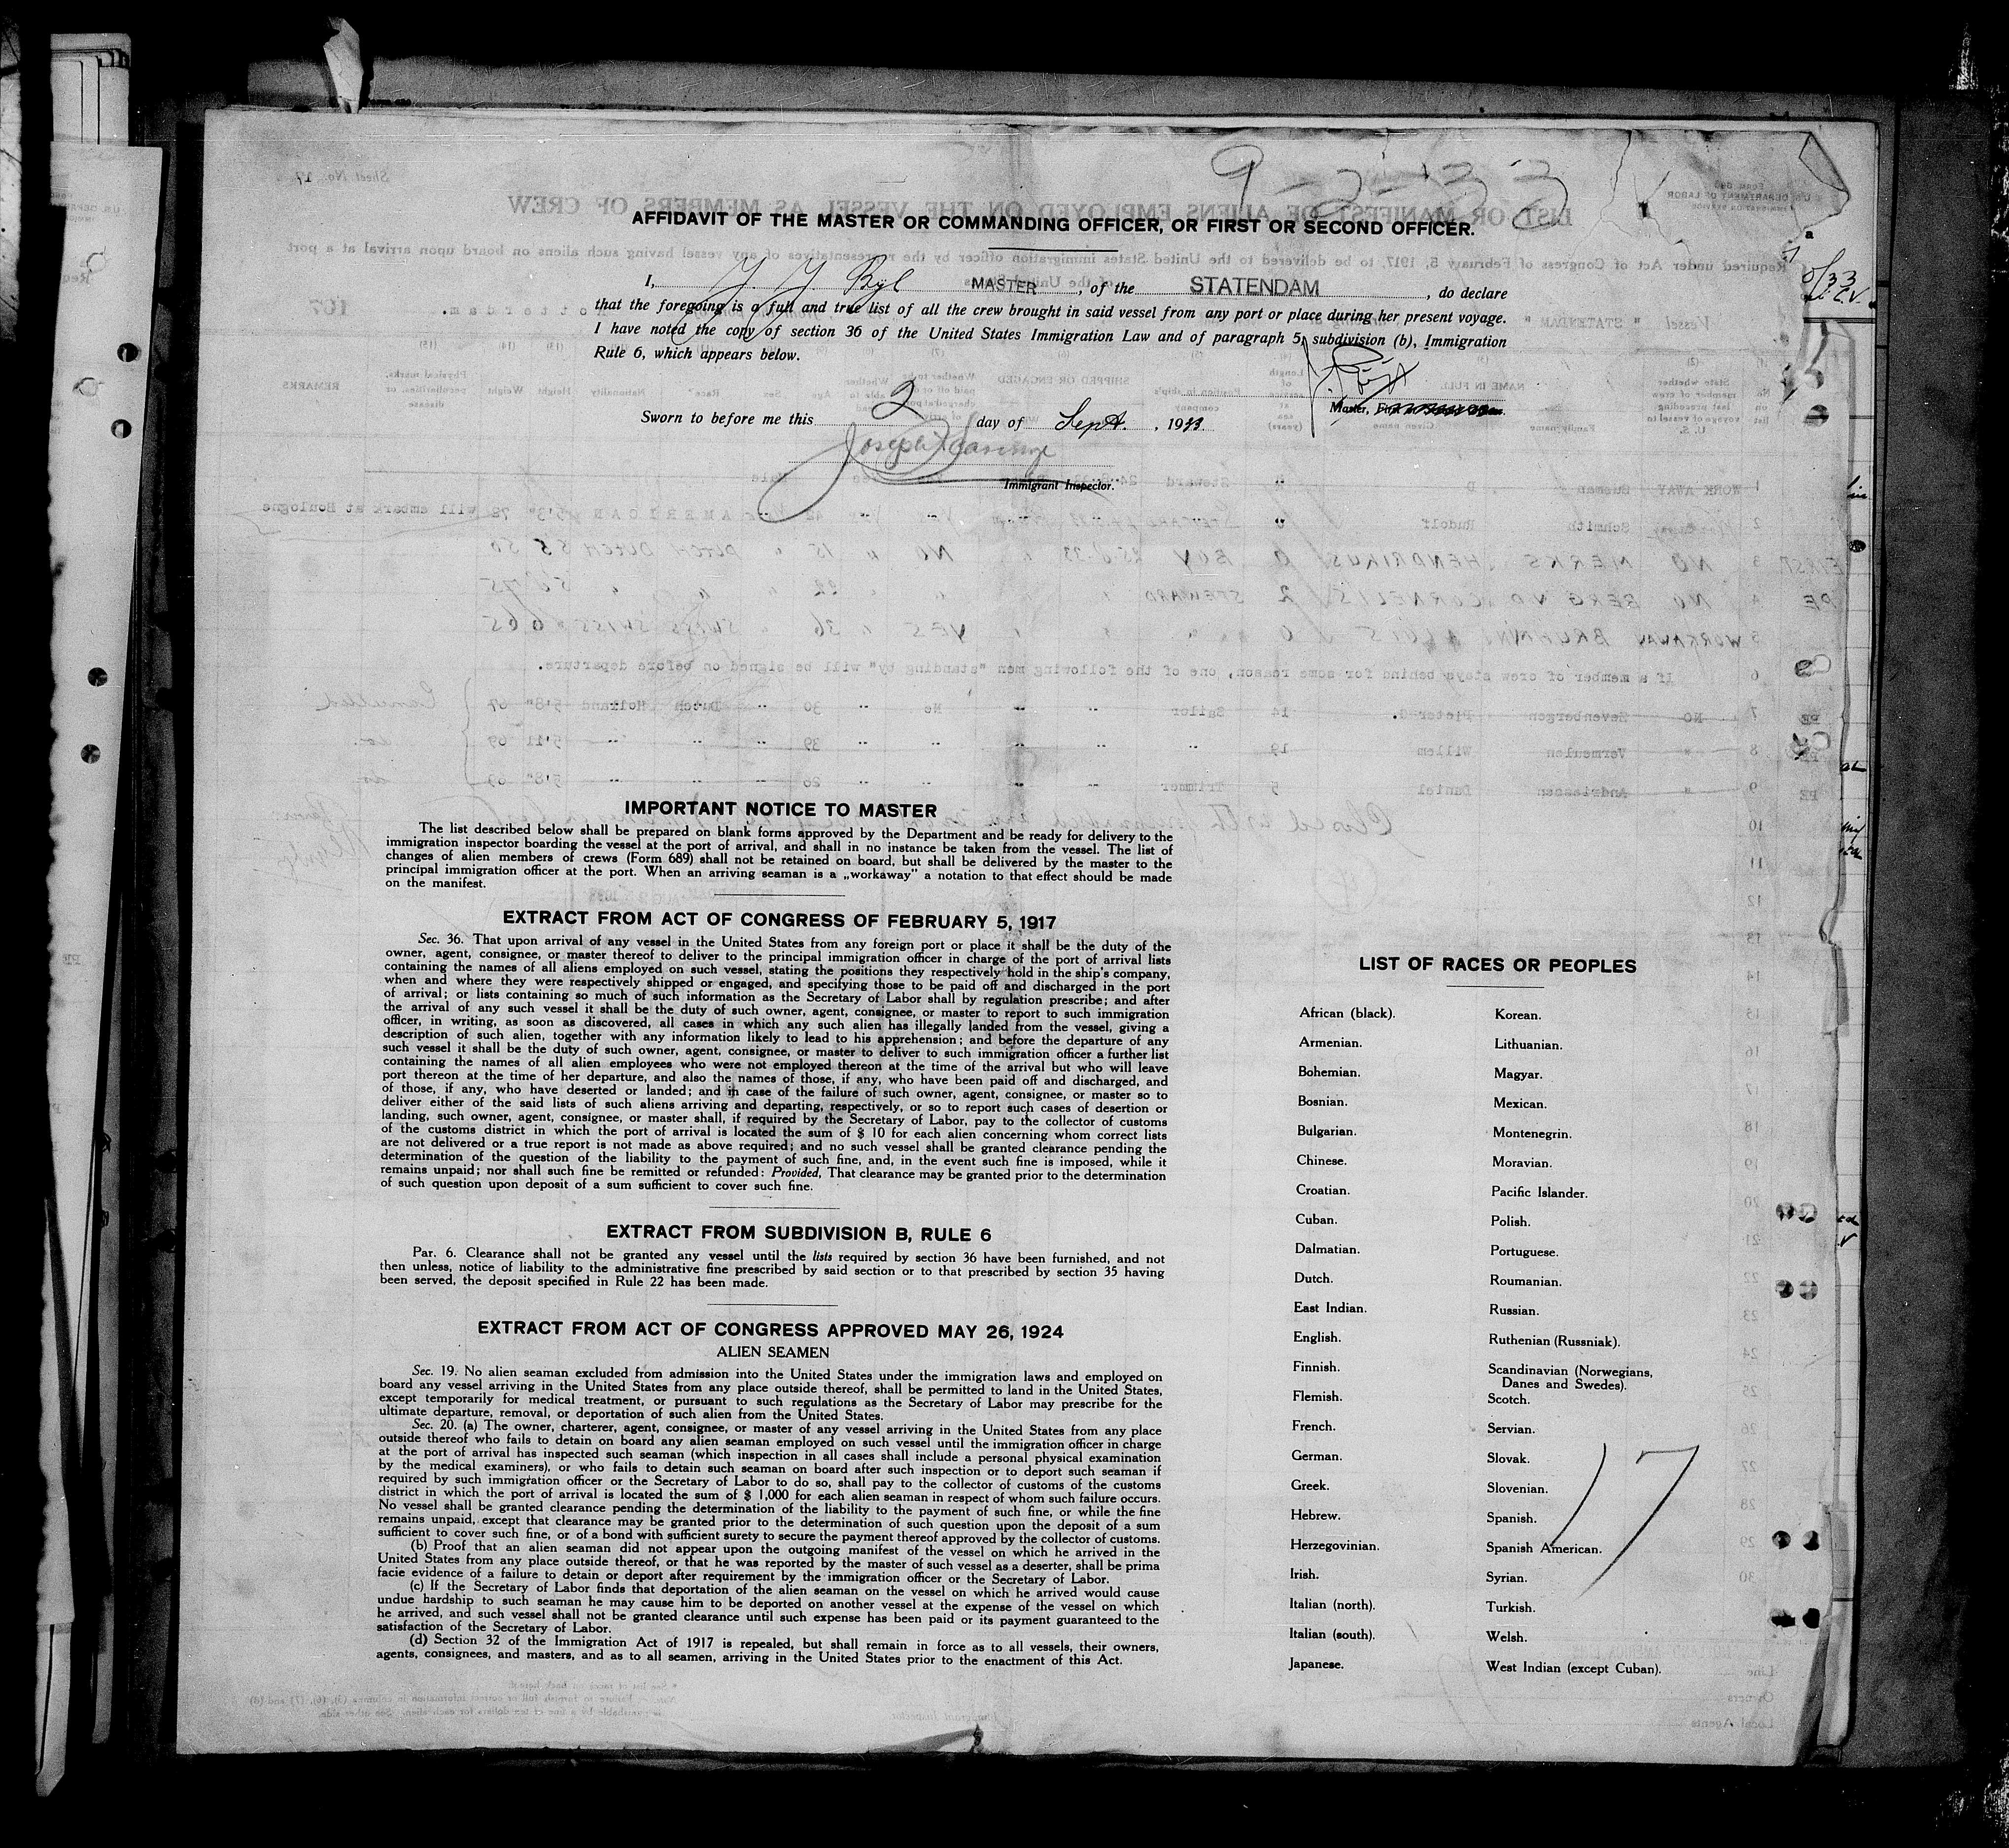 9-2-33
AFFIDAVIT OF THE MASTER OR COMMANDING OFFICER, OR FIRST OR SECOND OFFICER.
I, Y. Y. Byl MASTER, of the STATENDAM, do declare
that the foregoing is a full and true list of all the crew brought in said vessel from any port or place during her present voyage.
I have noted the copy of section 36 of the United States Immigration Law and of paragraph 5, subdivision (b), Immigration
Rule 6, which appears below.
Master,
Sworn to before me this 2 day of Sept. , 1933.
Joseph
Immigrant Inspector.
IMPORTANT NOTICE TO MASTER
The list described below shall be prepared on blank forms approved by the Department and be ready for delivery to the
immigration inspector boarding the vessel at the port of arrival, and shall in no instance be taken from the vessel. The list of
changes of alien members of crews (Form 689) shall not be retained on board, but shall be delivered by the master to the
principal immigration officer at the port. When an arriving seaman is a „workaway” a notation to that effect should be made
on the manifest.
EXTRACT FROM ACT OF CONGRESS OF FEBRUARY 5, 1917
Sec. 36. That upon arrival of any vessel in the United States from any foreign port or place it shall be the duty of the
owner, agent, consignee, or master thereof to deliver to the principal immigration officer in charge of the port of arrival lists
containing the names of all aliens employed on such vessel, stating the positions they respectively hold in the ship's company,
when and where they were respectively shipped or engaged, and specifying those to be paid off and discharged in the port
of arrival; or lists containing so much of such information as the Secretary of Labor shall by regulation prescribe; and after
the arrival of any such vessel it shall be the duty of such owner, agent, consignee, or master to report to such immigration
officer, in writing, as soon as discovered, all cases in which any such alien has illegally landed from the vessel, giving a
description of such alien, together with any information likely to lead to his apprehension; and before the departure of any
such vessel it shall be the duty of such owner, agent, consignee, or master to deliver to such immigration officer a further list
containing the names of all alien employees who were not employed thereon at the time of the arrival but who will leave
port thereon at the time of her departure, and also the names of those, if any, who have been paid off and discharged, and
of those, if any, who have deserted or landed; and in case of the failure of such owner, agent, consignee, or master so to
deliver either of the said lists of such aliens arriving and departing, respectively, or so to report such cases of desertion or
landing, such owner, agent, consignee, or master shall, if required by the Secretary of Labor, pay to the collector of customs
of the customs district in which the port of arrival is located the sum of $ 10 for each alien concerning whom correct lists
are not delivered or a true report is not made as above required; and no such vessel shall be granted clearance pending the
determination of the question of the liability to the payment of such fine, and, in the event such fine is imposed, while it
remains unpaid; nor shall such fine be remitted or refunded: Provided, That clearance may be granted prior to the determination
of such question upon deposit of a sum sufficient to cover such fine.
EXTRACT FROM SUBDIVISION B, RULE 6
Par. 6. Clearance shall not be granted any vessel until the lists required by section 36 have been furnished, and not
then unless, notice of liability to the administrative fine prescribed by said section or to that prescribed by section 35 having
been served, the deposit specified in Rule 22 has been made.
EXTRACT FROM ACT OF CONGRESS APPROVED MAY 26, 1924
ALIEN SEAMEN
Sec. 19. No alien seaman excluded from admission into the United States under the immigration laws and employed on
board any vessel arriving in the United States from any place outside thereof, shall be permitted to land in the United States,
except temporarily for medical treatment, or pursuant to such regulations as the Secretary of Labor may prescribe for the
ultimate departure, removal, or deportation of such alien from the United States.
Sec. 20. (a) The owner, charterer, agent, consignee, or master of any vessel arriving in the United States from any place
outside thereof who fails to detain on board any alien seaman employed on such vessel until the immigration officer in charge
at the port of arrival has inspected such seaman (which inspection in all cases shall include a personal physical examination
by the medical examiners), or who fails to detain such seaman on board after such inspection or to deport such seaman if
required by such immigration officer or the Secretary of Labor to do so, shall pay to the collector of customs of the customs
district in which the port of arrival is located the sum of $ 1,000 for each alien seaman in respect of whom such failure occurs.
No vessel shall be granted clearance pending the determination of the liability to the payment of such fine, or while the fine
remains unpaid, except that clearance may be granted prior to the determination of such question upon the deposit of a sum
sufficient to cover such fine, or of a bond with sufficient surety to secure the payment thereof approved by the collector of customs.
(b) Proof that an alien seaman did not appear upon the outgoing manifest of the vessel on which he arrived in the
United States from any place outside thereof, or that he was reported by the master of such vessel as a deserter, shall be prima
facie evidence of a failure to detain or deport after requirement by the immigration officer or the Secretary of Labor.
(c) If the Secretary of Labor finds that deportation of the alien seaman on the vessel on which he arrived would cause
undue hardship to such seaman he may cause him to be deported on another vessel at the expense of the vessel on which
he arrived, and such vessel shall not be granted clearance until such expense has been paid or its payment guaranteed to the
satisfaction of the Secretary of Labor.
(d) Section 32 of the Immigration Act of 1917 is repealed, but shall remain in force as to all vessels, their owners,
agents, consignees, and masters, and as to all seamen, arriving in the United States prior to the enactment of this Act.
LIST OF RACES OR PEOPLES
African (black).
Armenian.
Bohemian.
Bosnian.
Bulgarian.
Chinese.
Croatian.
Cuban.
Dalmatian.
Dutch.
East Indian.
English.
Finnish.
Flemish.
French.
German.
Greek.
Hebrew.
Herzegovinian.
Irish.
Italian (north).
Italian (south).
Japanese.
Korean.
Lithuanian.
Magyar.
Mexican.
Montenegrin.
Moravian.
Pacific Islander.
Polish.
Portuguese.
Roumanian.
Russian.
Ruthenian (Russniak).
Scandinavian (Norwegians,
Danes and Swedes).
Scotch.
Servian.
Slovak.
Slovenian.
Spanish.
Spanish American.
Syrian.
Turkish.
Welsh.
West Indian (except Cuban).
17